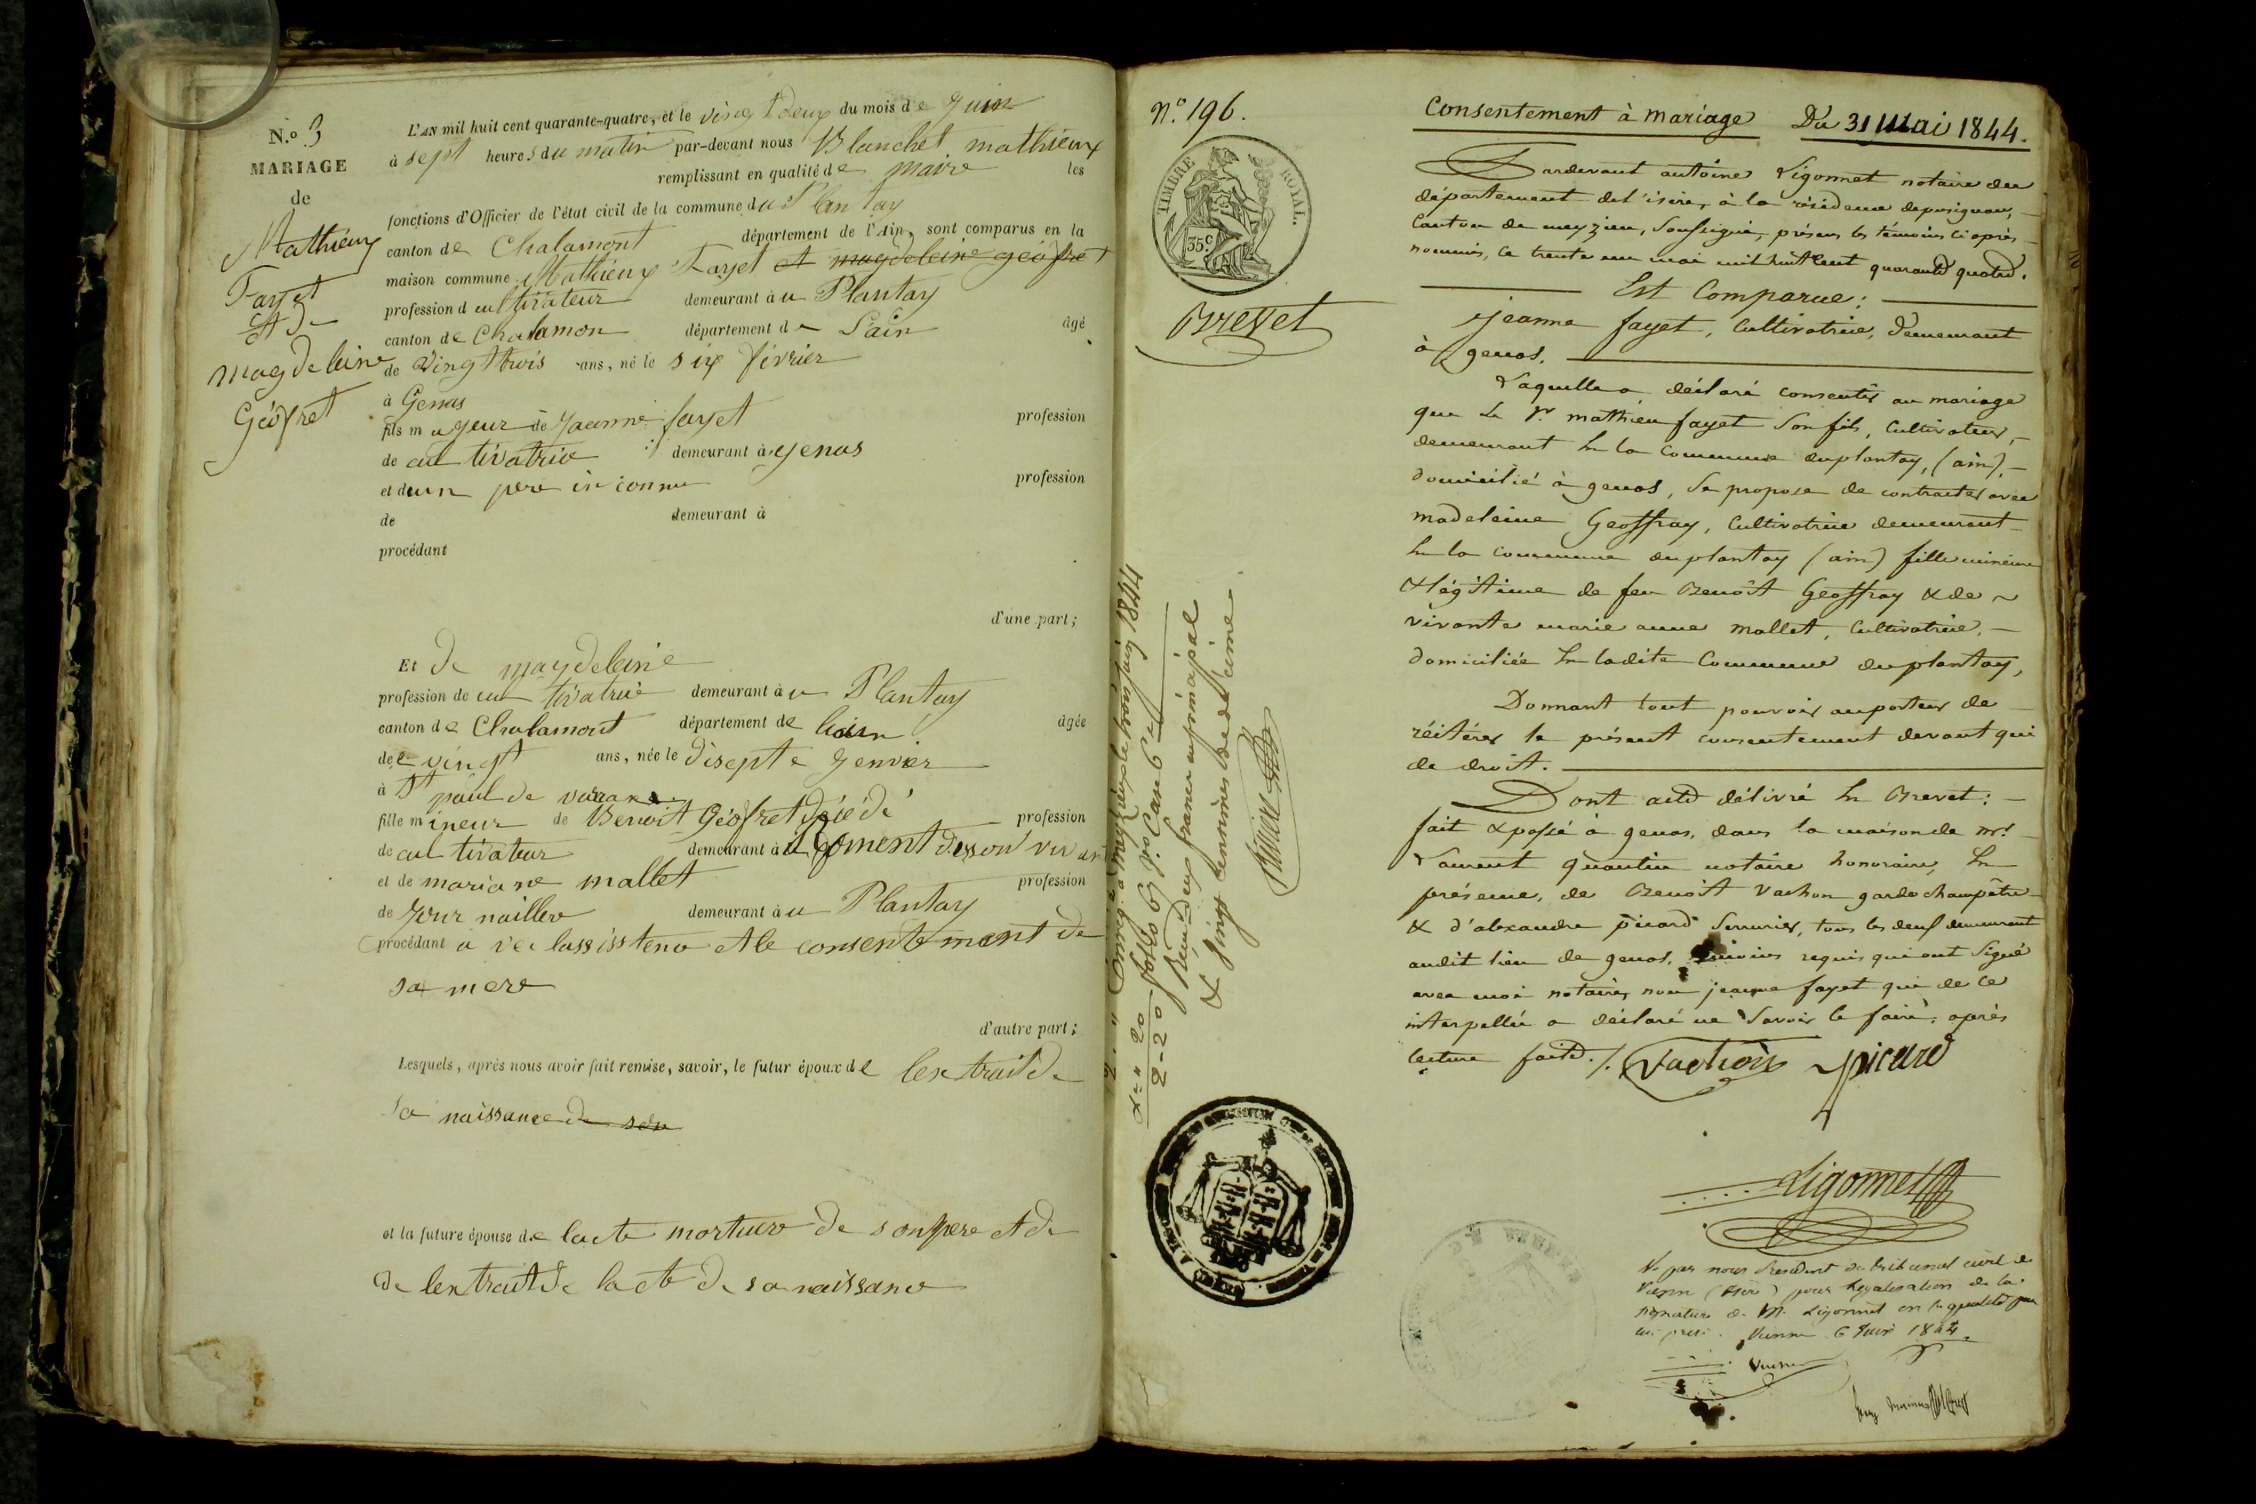 N.o 3
MARIAGE
de
Mathieux
Fayet
et de
magdeleine
Géofret
L'AN mil huit cent quarante-quatre, et le vingt deux du mois de Juin
à sept heures du matin par-devant nous Blanchet mathieux
remplissant en qualité de maire les
fonctions d'Officier de l'état civil de la commune du Plantay
canton de Chalamont département de l'Ain, sont comparus en la
maison commune Mathieux Fayet et magdeleine géofret
profession d cultivateur demeurant à u Plantay
canton de Chalamon département de Lain âgé
de Vingt trois ans, né le six février
à Genas
fils mageur de Jeanne fayet profession
de cultivatrice demeurant à genas
et dun pere inconnu profession
de demeurant à
procédant
d'une part;
Et de magdeleine
profession de cultivatrice demeurant à u Plantay
canton de Chalamont département de lain âgée
dee vingt ans, née le disepte genvier
à St paul de varax
fille mineur de Benoit Géofret décédé profession
de cultivateur demeurant à desson vivant
et de mariane mallet profession
de Journaillere demeurant à u Plantay
procédant avec lassisstence et le consentement de
sa mere
d'autre part;
Lesquels, après nous avoir fait remise, savoir, le futur époux de lextrait de
sa naissance de son
et la future épouse de lacte mortuere de son pere et de
de lextrait de lacte de sa naissance
n.o 196.
TIMBRE ROYAL.
35.c
Brevet
Consentement à mariage Du 31 Mai 1844.
Pardevant antoine Ligonnet notaire du
département de l'isère, à la résidence de pusignan,
Canton de meyzieu, Soussigné, présens les témoins ci après
nommés, ce trente un mai mil huit cent quarante quatre.
Est Comparue:
jeanne fayet, Cultivatrice, demeurant
à genas.
Laquelle a déclaré consentir au mariage
que le Sr. mathieu fayet Son fils, Cultivateur,
demeurant en la Commune du plantay, (ain),
domicilié à genas, Se propose de contracter avec
madeleine Geoffray, Cultivatrice demeurant
en la commune du plantay (ain) fille mineure
& légitime de feu Benoît Geoffray & de
vivante marie anne mallet, Cultivatrice,
domiciliée en ladite Commune du plantay,
Donnant tout pouvoir au porteur de
réitérer le présent consentement devant qui
de droit.
Dont acte délivré en Brevet:
fait & passé à genas, dans la maison de mr.
Laurent quantin notaire honoraire, en
présence, de Benoît Vachon garde champêtre
& d'alexandre picard Serrurier, tous les deux demeurant
audit lieu de genas, témoins requis qui ont Signé
avec moi notaire, non jeanne fayet qui de ce
interpellée a déclaré ne Savoir le faire, après
lecture faite./. Vachon picard
Ligonnet
Vu par nous Président du tribunal civil de
Vienne (Isère) pour légalisation de la
signature de Mr. Ligonnet en la qualité par
lui prise. Vienne 6 Juin 1844.
Enreg.é à meyzieu le trois juin 1844
folio 69 v.o Case 6
Reçu deux francs en principal
& vingt centimes de décime.
2 - 20